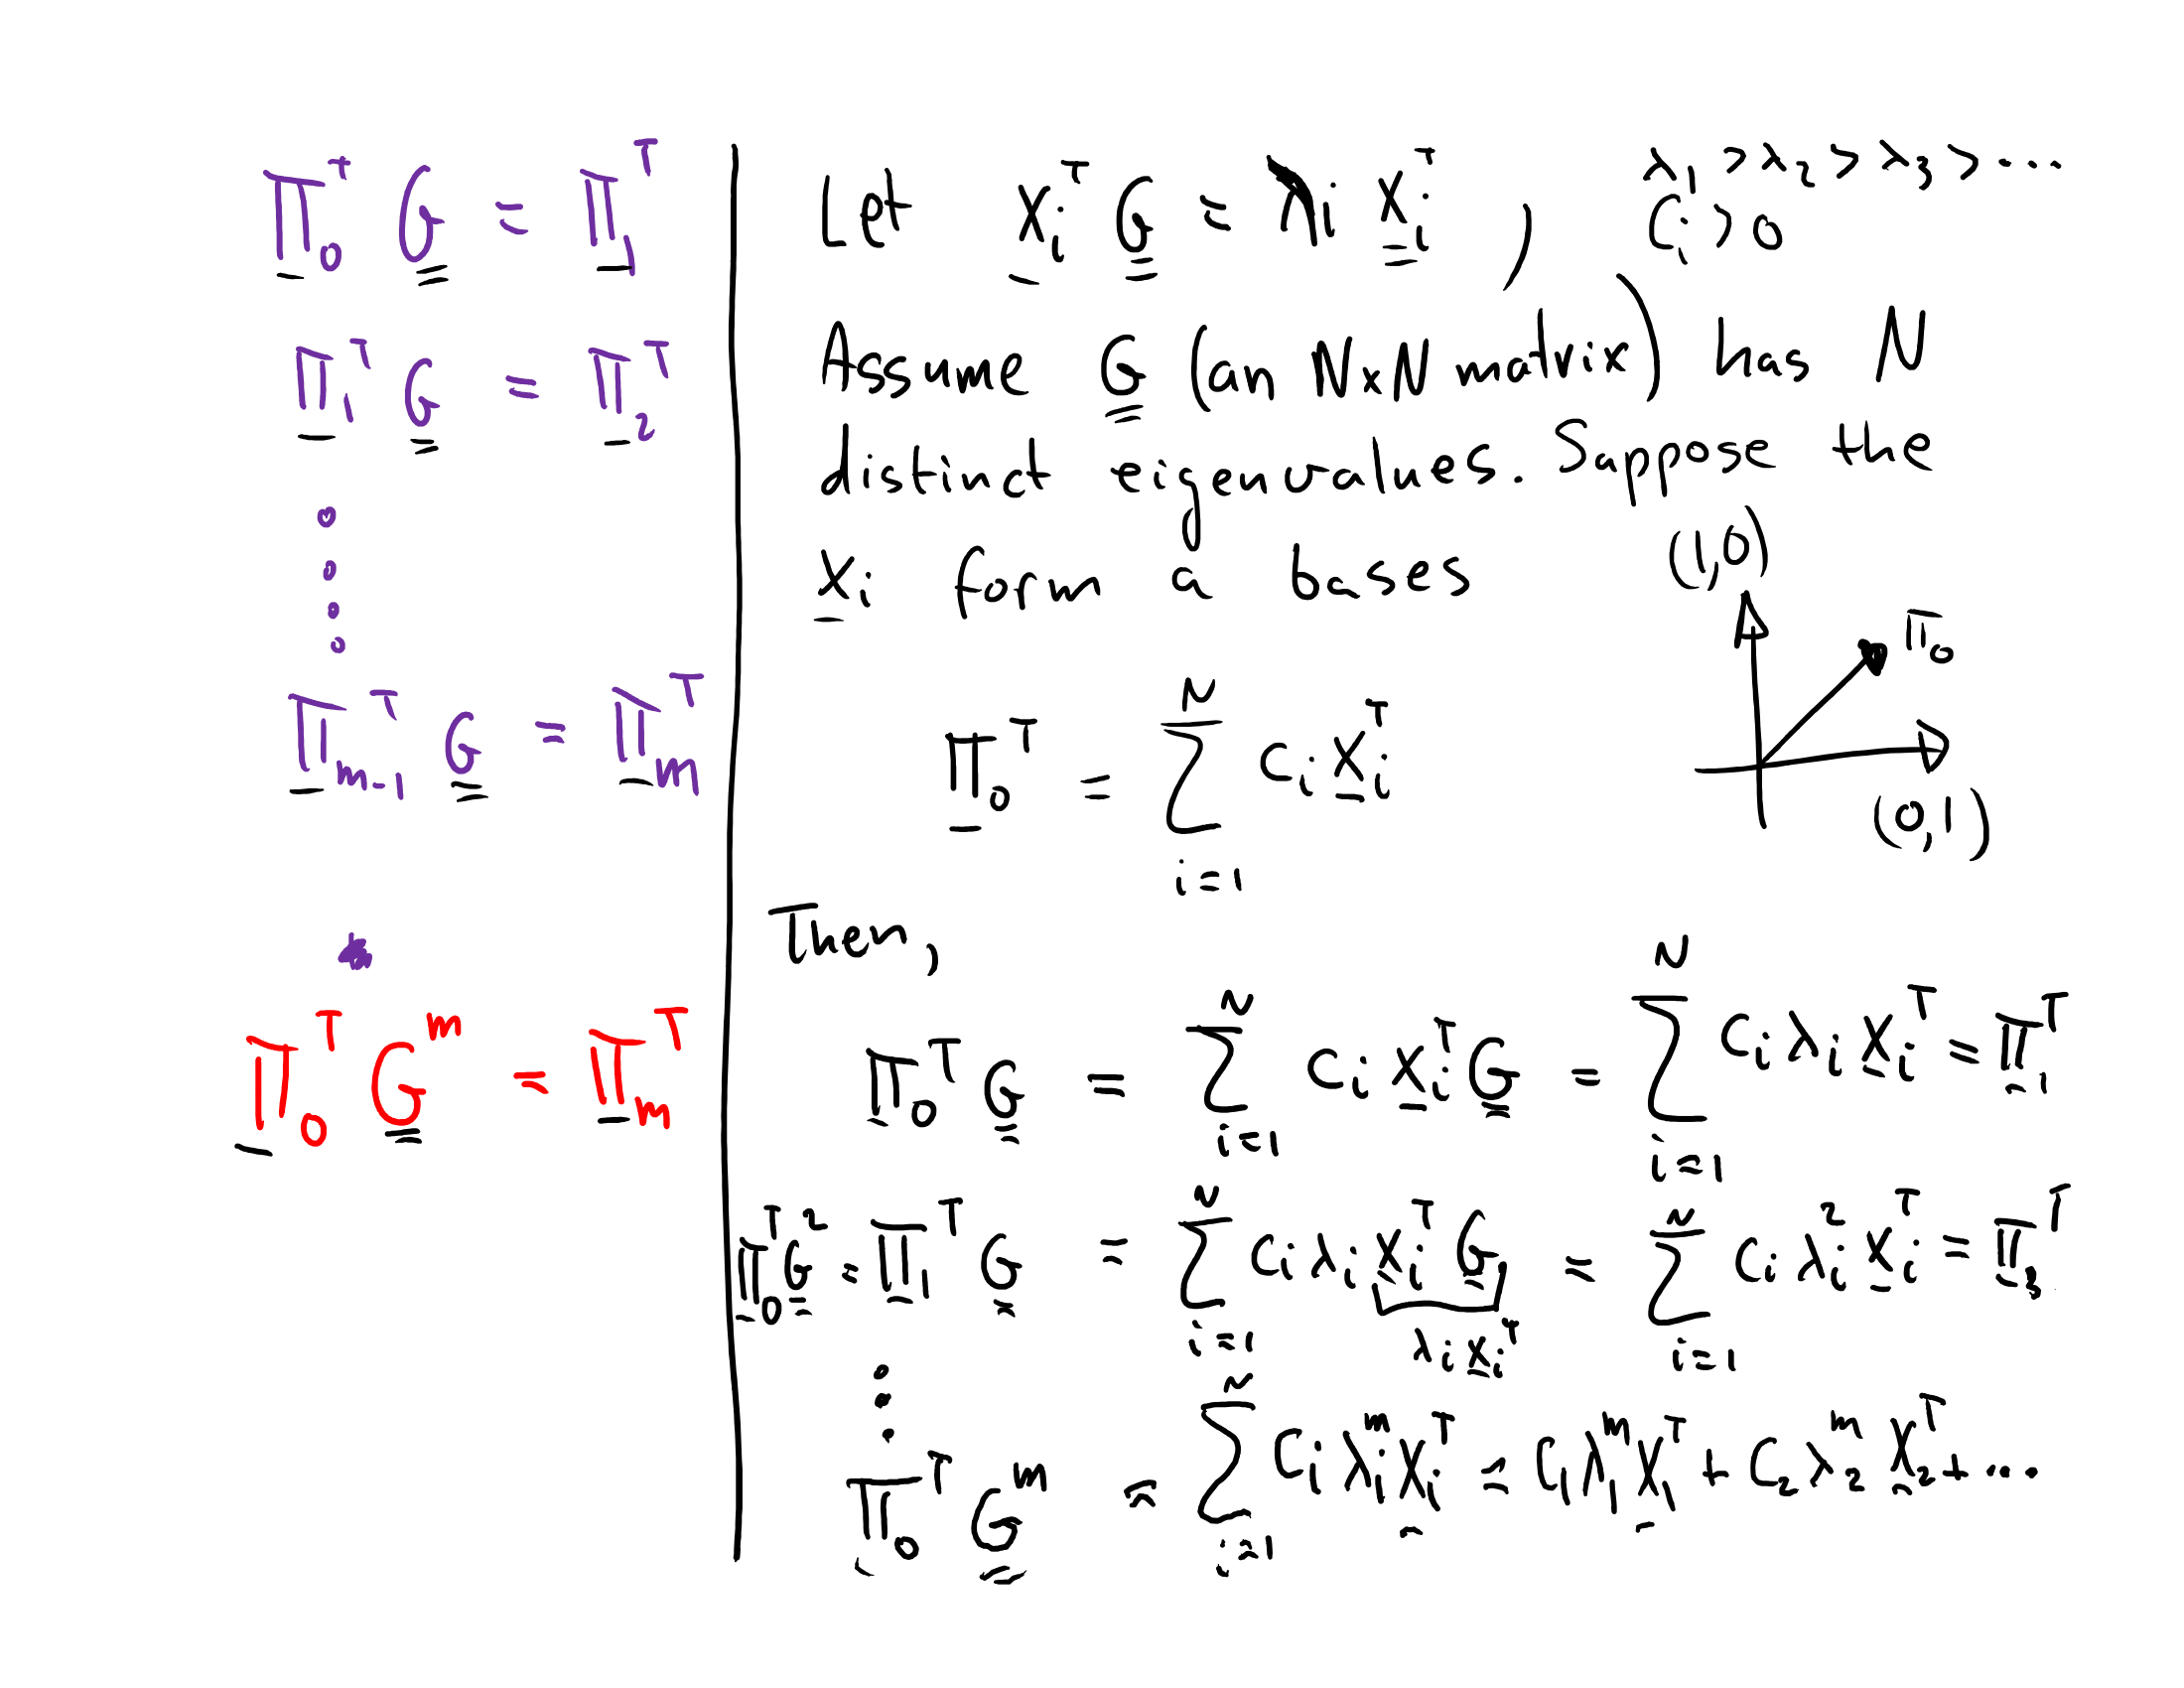 Π₀ᵀ G = Π₁ᵀ
Π₁ᵀ G = Π₂ᵀ
Πₘ₋₁ᵀ G = Πₘᵀ
Π₀ᵀ Gᵐ = Πₘᵀ
Let Xᵢᵀ G = λᵢ Xᵢᵀ , λ₁ > λ₂ > λ₃ > ...
Cᵢ > 0
Assume G (an N×N matrix) has N
distinct eigenvalues. Suppose the
Xᵢ form a bases
(1,0)
Π₀
(0,1)
Π₀ᵀ = ∑ᵢ₌₁ᴺ Cᵢ Xᵢᵀ
Then,
Π₀ᵀ G = ∑ᵢ₌₁ᴺ Cᵢ Xᵢᵀ G = ∑ᵢ₌₁ᴺ Cᵢ λᵢ Xᵢᵀ = Π₁ᵀ
Π₀ᵀ G² = Π₁ᵀ G = ∑ᵢ₌₁ᴺ Cᵢ λᵢ Xᵢᵀ G = ∑ᵢ₌₁ᴺ Cᵢ λᵢ² Xᵢᵀ = Πᵀ
λᵢ Xᵢᵀ
Π₀ᵀ Gᵐ = ∑ᵢ₌₁ᴺ Cᵢ λᵢᵐ Xᵢᵀ = C₁ λ₁ᵐ X₁ᵀ + C₂ λ₂ᵐ X₂ᵀ + ...